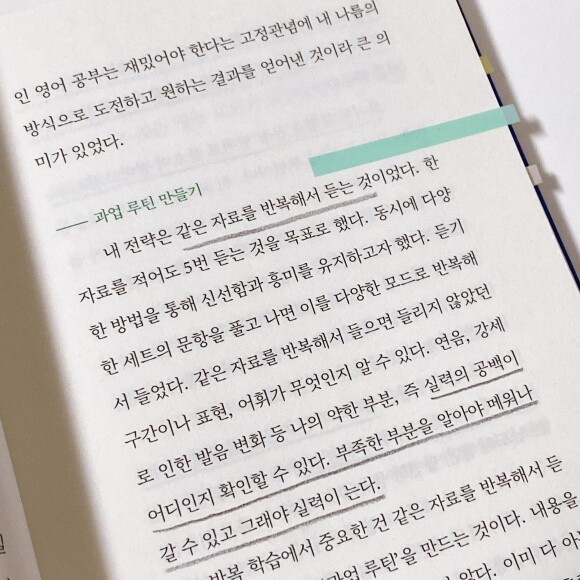 인 영어 공부는 재밌어야 한다는 고정관념에 내 나름의
방식으로 도전하고 원하는 결과를 얻어낸 것이라 큰 의
미가 있었다.
과업 루틴 만들기
내 전략은 같은 자료를 반복해서 듣는 것이었다. 한
자료를 적어도 5번 듣는 것을 목표로 했다. 동시에 다양
한 방법을 통해 신선함과 흥미를 유지하고자 했다. 듣기
한 세트의 문항을 풀고 나면 이를 다양한 모드로 반복해
서 들었다. 같은 자료를 반복해서 들으면 들리지 않았던
구간이나 표현, 어휘가 무엇인지 알 수 있다. 연음, 강세
로 인한 발음 변화 등 나의 약한 부분, 즉 실력의 공백이
어디인지 확인할 수 있다. 부족한 부분을 알아야 메워나
갈 수 있고 그래야 실력이 는다.
반복 학습에서 중요한 건 같은 자료를 반복해서 듣
'과업 루틴'을 만드는 것이다. 내용을
았다. 이미 다